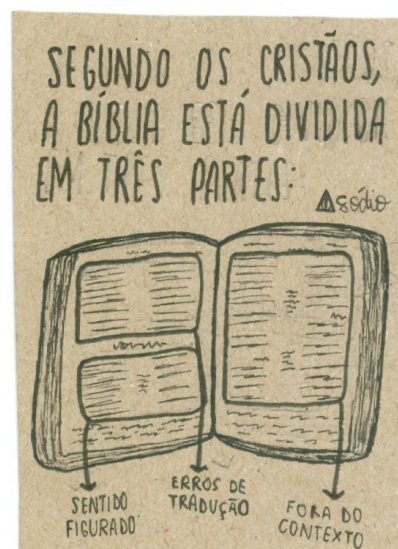 SEGUNDO OS CRISTÃOS,
A BÍBLIA ESTÁ DIVIDIDA
EM TRÊS PARTES:
Asódio
SENTIDO
FIGURADO
ERROS DE
TRADUÇÃO
FORA DO
CONTEXTO